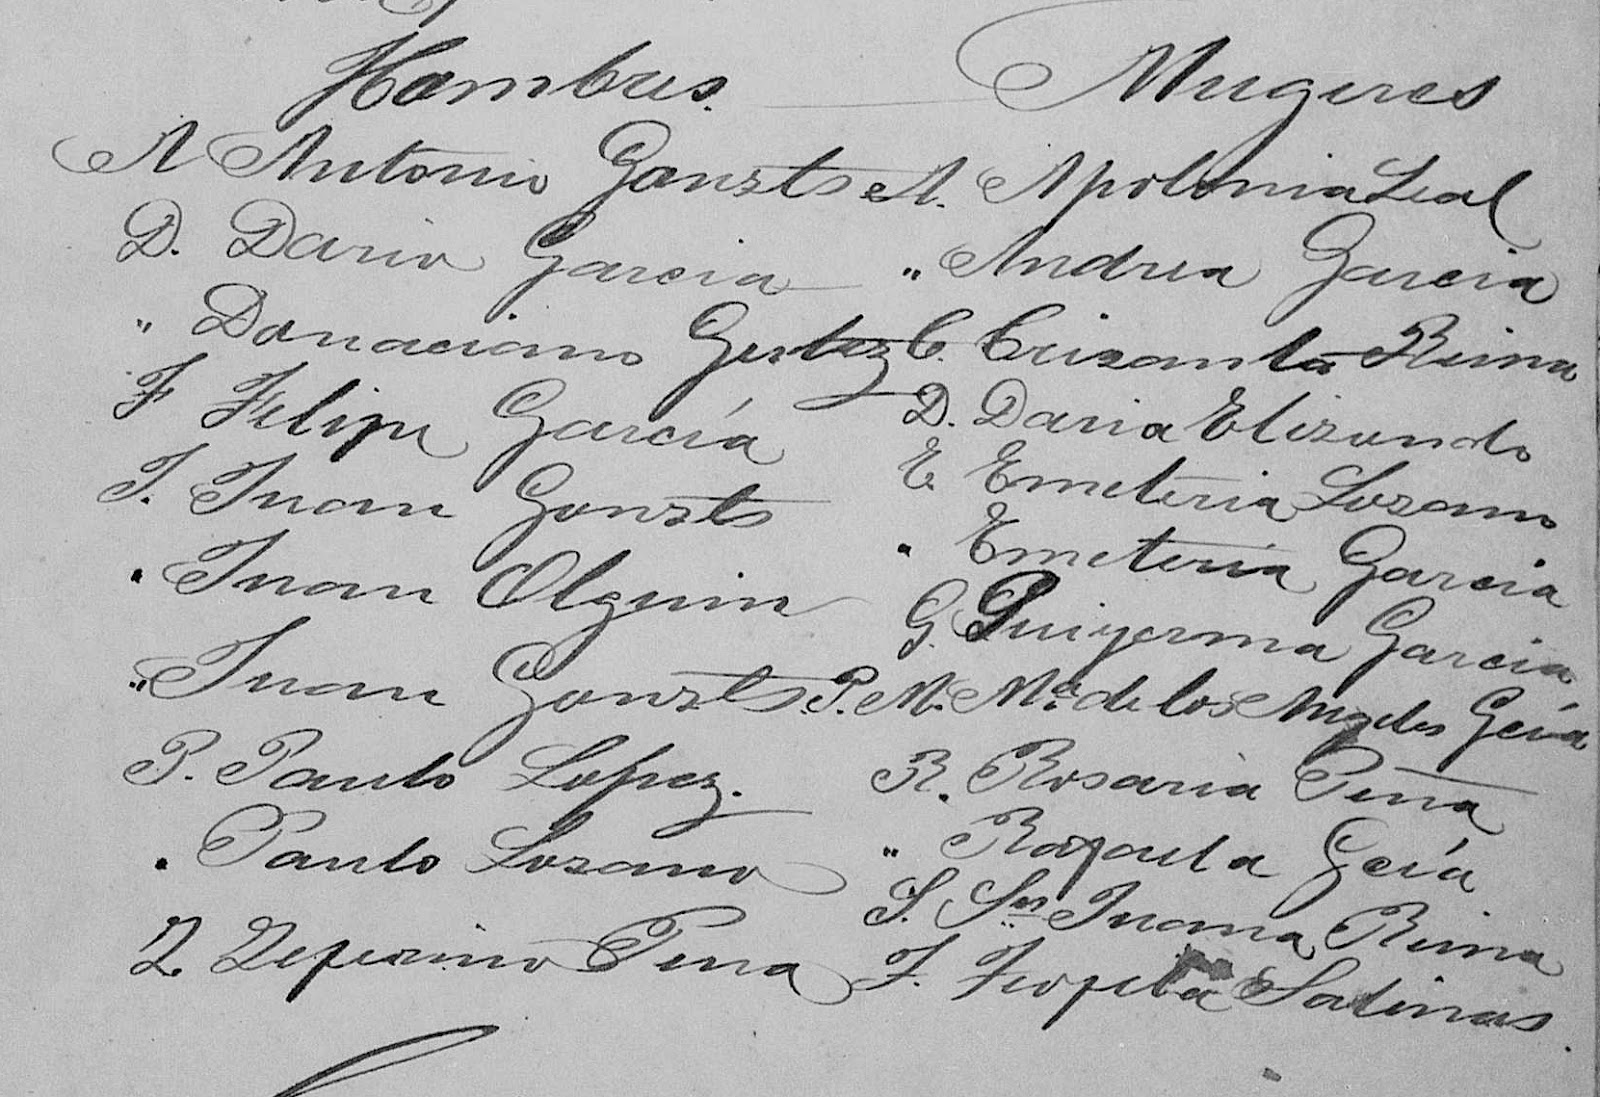 Hombres. Mugeres
A Antonio Gonzts
D. Dario Garcia
" Donaciano Gutez
F Felipe García
J. Juan Gonzts
" Juan Olguin
" Juan Gonzts
P. Paulo Lopez.
" Paulo Lozano
Z Zeferino Pena
A. Apolonia Leal
" Andrea Garcia
C. Crizanta Reina
D. Daria Elizondo
E. Emeteria Lozano
" Emeteria Garcia
G. Guiyerma Garcia
M. Ma. de los Angeles Gcía
R. Rosaria Peña
" Rafaela Gcía
S. Sor Juana Reina
T. Teofila Salinas